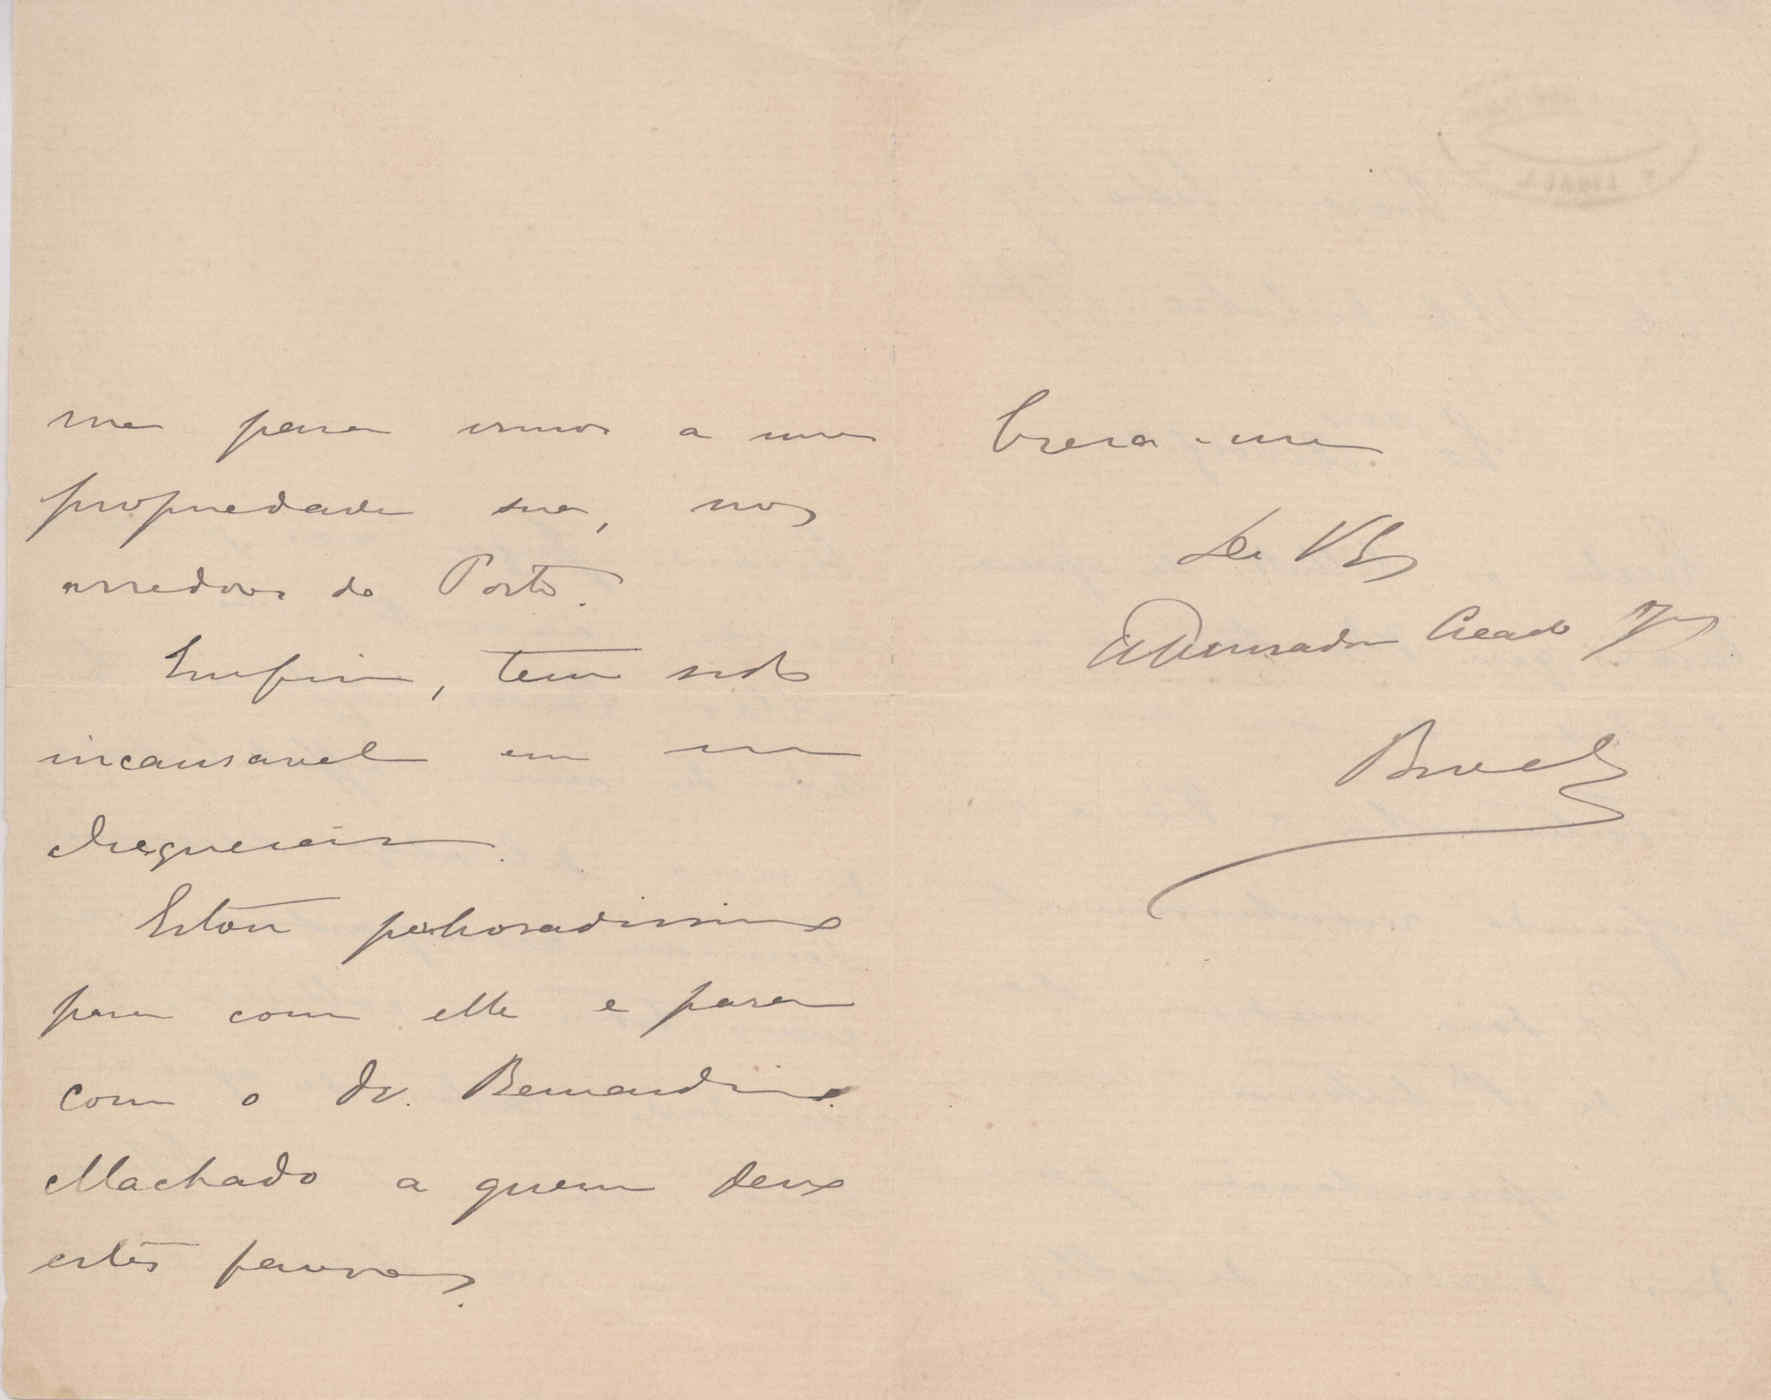 me para irmos a uma
propriedade sua, nos
arredores do Porto.
Emfim, tem sido
incansavel em me
obsequiar.
Estou penhoradissimo
para com elle e para
com o Dr. Bernardino
Machado a quem devo
estes favores.
Creia-me
De V Ex
Admirador Creado
Bruel